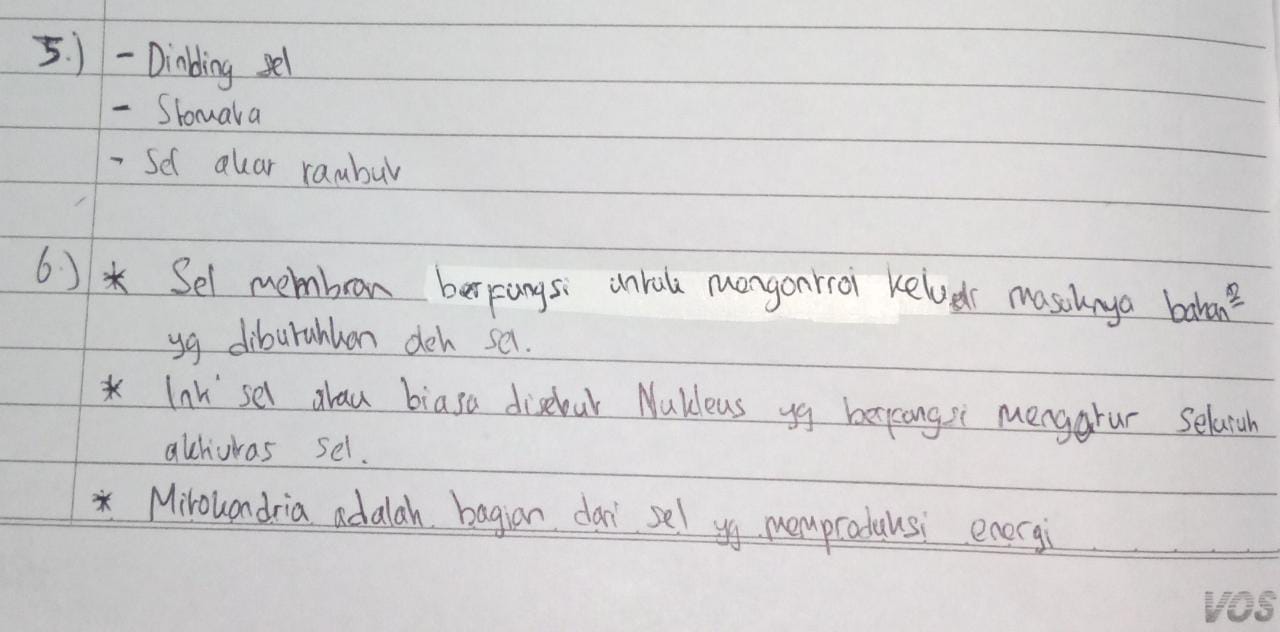 5.) - Dinding sel
- Stomata
- Sel akar rambut
6.) * Sel membran berfungsi untuk mengontrol keluar masuknya bahan²
yg dibutuhkan oleh sel.
* Inti sel atau biasa disebut Nukleus yg berfungsi mengatur seluruh
aktivitas sel.
* Mitokondria adalah bagian dari sel yg memproduksi energi
VOS